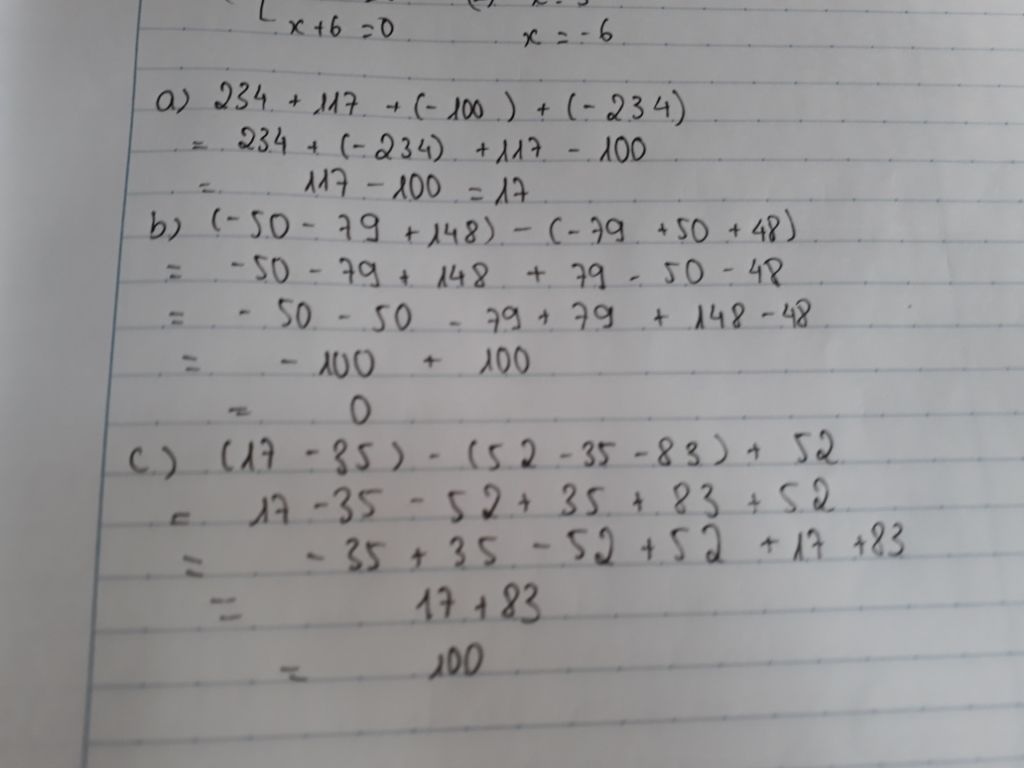 x+6=0 x=-6
a) 234 + 117 + (-100) + (-234)
= 234 + (-234) + 117 - 100
= 117 - 100 = 17
b) (-50 - 79 + 148) - (-79 + 50 + 48)
= -50 - 79 + 148 + 79 - 50 - 48
= - 50 - 50 - 79 + 79 + 148 - 48
= - 100 + 100
= 0
c.) (17 - 35) - (52 - 35 - 83) + 52
= 17 - 35 - 52 + 35 + 83 + 52
= - 35 + 35 - 52 + 52 + 17 + 83
= 17 + 83
= 100